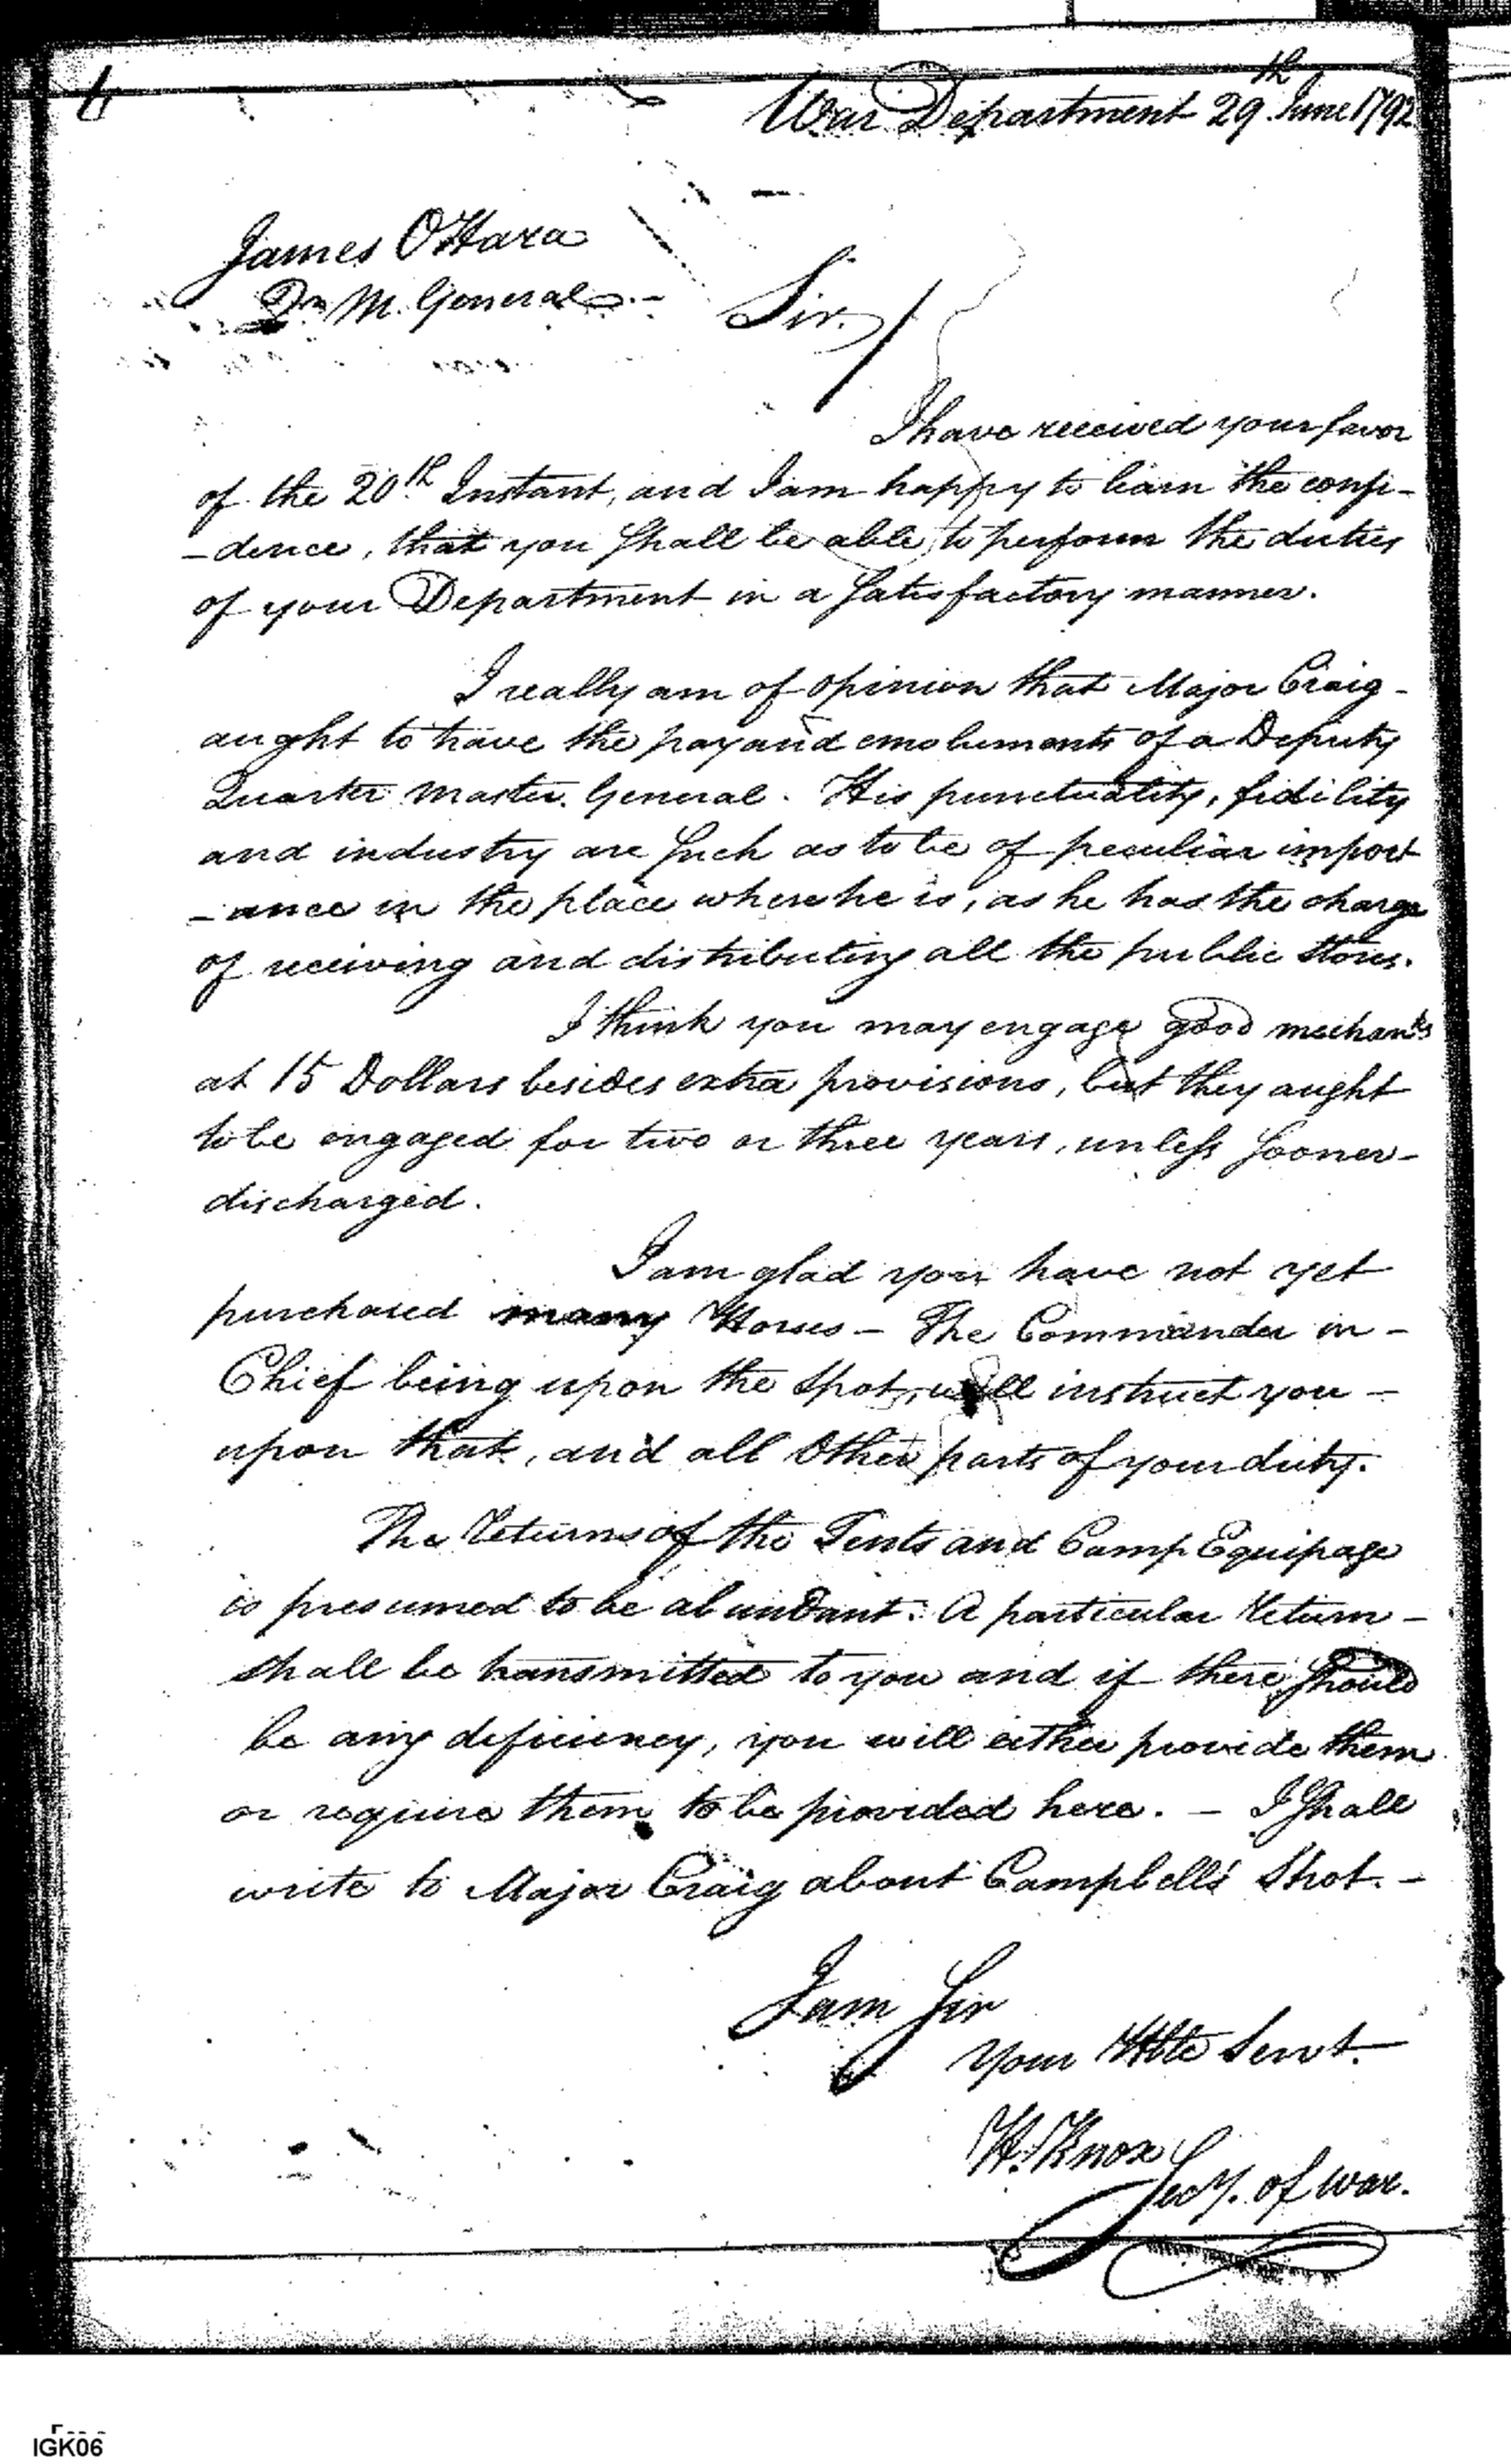 6
War Department 29th June 1792
James OHara
Qr M. General.-
Sir,
I have received your favor
of the 20th Instant, and I am happy to learn the confi-
-dence, that you shall be able to perform the duties
of your Department in a satisfactory manner.
I really am of opinion that Major Craig-
aught to have the pay and emoluments of a Deputy
Quarter Master General. His punctuality, fidility
and industry are such as to be of peculiar import
-ance in the place where he is, as he has the charge
of receiving and distributing all the public stores.
I think you may engage good mechanks
at 15 Dollars besides extra provisions, but they aught
to be engaged for two or three years, unless sooner-
discharged.
I am glad you have not yet
purchased many Horses - The Commander in-
Chief being upon the spot, will instruct you -
upon that, and all Other parts of your duty.
The Returns of the Tents and Camp Equipage
is presumed to be abundant. A particular return -
shall be transmitted to you and if there should
be any deficiency, you will either provide them
or require them to be provided here. - I shall
write to Major Craig about Campbells' shot. -
I am Sir
Your Hble Servt.
H. Knox
Secy. of War.
IGK06